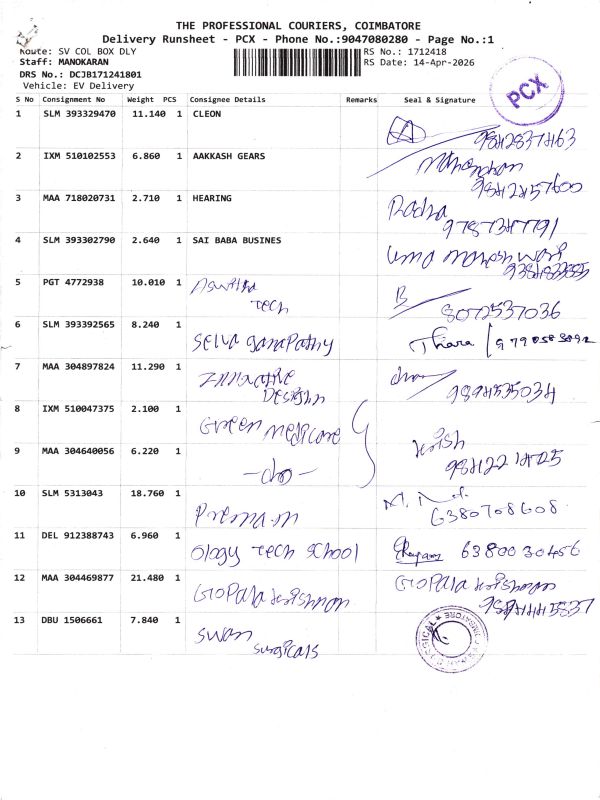 THE PROFESSIONAL COURIERS, COIMBATORE
Delivery Runsheet - PCX - Phone No.:9047080280 - Page No.:1
Route: SV COL BOX DLY
RS No.: 1712418
Staff: MANOKARAN
RS Date: 14-Apr-2026
DRS No.: DCJB171241801
Vehicle: EV Delivery
PCX
S No Consignment No Weight PCS Consignee Details Remarks Seal & Signature
1 SLM 393329470 11.140 1 CLEON
2 IXM 510102553 6.860 1 AAKKASH GEARS
3 MAA 718020731 2.710 1 HEARING Radha
9787347791
4 SLM 393302790 2.640 1 SAI BABA BUSINES Uma
5 PGT 4772938 10.010 1 Aswitha
Tech
8072537036
6 SLM 393392565 8.240 1 Selva Ganapathy Thara
7 MAA 304897824 11.290 1
Design
9894535034
8 IXM 510047375 2.100 1 Green Medicare
9 MAA 304640056 6.220 1 -do- Krish
10 SLM 5313043 18.760 1 Prema-m
6380708608
11 DEL 912388743 6.960 1 ology Tech School 6380030456
12 MAA 304469877 21.480 1 Gopala Krishnan Gopala Krishnan
13 DBU 1506661 7.840 1 Swan
Surgicals